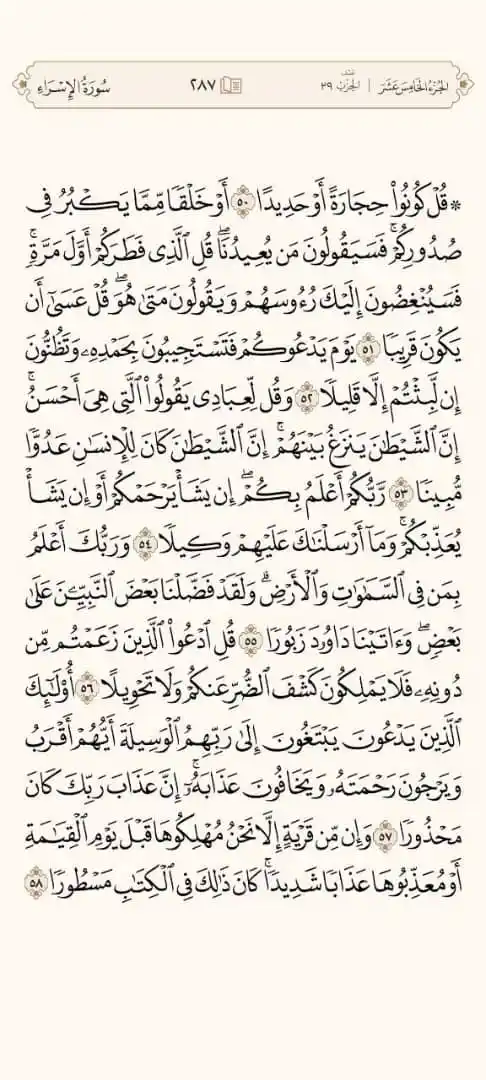 الجُزءُ الخَامِسَ عَشَرَ | نصف الحِزب ٢٩ ٢٨٧ سُورَةُ الإِسْرَاءِ
* قُلْ كُونُوا۟ حِجَارَةً أَوْ حَدِيدًا ٥٠ أَوْ خَلْقًا مِّمَّا يَكْبُرُ فِى
صُدُورِكُمْ ۚ فَسَيَقُولُونَ مَن يُعِيدُنَا ۖ قُلِ ٱلَّذِى فَطَرَكُمْ أَوَّلَ مَرَّةٍ ۚ
فَسَيُنْغِضُونَ إِلَيْكَ رُءُوسَهُمْ وَيَقُولُونَ مَتَىٰ هُوَ ۖ قُلْ عَسَىٰٓ أَن
يَكُونَ قَرِيبًا ٥١ يَوْمَ يَدْعُوكُمْ فَتَسْتَجِيبُونَ بِحَمْدِهِۦ وَتَظُنُّونَ
إِن لَّبِثْتُمْ إِلَّا قَلِيلًا ٥٢ وَقُل لِّعِبَادِى يَقُولُوا۟ ٱلَّتِى هِىَ أَحْسَنُ ۚ
إِنَّ ٱلشَّيْطَٰنَ يَنزَغُ بَيْنَهُمْ ۚ إِنَّ ٱلشَّيْطَٰنَ كَانَ لِلْإِنسَٰنِ عَدُوًّا
مُّبِينًا ٥٣ رَّبُّكُمْ أَعْلَمُ بِكُمْ ۖ إِن يَشَأْ يَرْحَمْكُمْ أَوْ إِن يَشَأْ
يُعَذِّبْكُمْ ۚ وَمَآ أَرْسَلْنَٰكَ عَلَيْهِمْ وَكِيلًا ٥٤ وَرَبُّكَ أَعْلَمُ
بِمَن فِى ٱلسَّمَٰوَٰتِ وَٱلْأَرْضِ ۗ وَلَقَدْ فَضَّلْنَا بَعْضَ ٱلنَّبِيِّـۧنَ عَلَىٰ
بَعْضٍ ۖ وَءَاتَيْنَا دَاوُۥدَ زَبُورًا ٥٥ قُلِ ٱدْعُوا۟ ٱلَّذِينَ زَعَمْتُم مِّن
دُونِهِۦ فَلَا يَمْلِكُونَ كَشْفَ ٱلضُّرِّ عَنكُمْ وَلَا تَحْوِيلًا ٥٦ أُو۟لَٰٓئِكَ
ٱلَّذِينَ يَدْعُونَ يَبْتَغُونَ إِلَىٰ رَبِّهِمُ ٱلْوَسِيلَةَ أَيُّهُمْ أَقْرَبُ
وَيَرْجُونَ رَحْمَتَهُۥ وَيَخَافُونَ عَذَابَهُۥٓ ۚ إِنَّ عَذَابَ رَبِّكَ كَانَ
مَحْذُورًا ٥٧ وَإِن مِّن قَرْيَةٍ إِلَّا نَحْنُ مُهْلِكُوهَا قَبْلَ يَوْمِ ٱلْقِيَٰمَةِ
أَوْ مُعَذِّبُوهَا عَذَابًا شَدِيدًا ۚ كَانَ ذَٰلِكَ فِى ٱلْكِتَٰبِ مَسْطُورًا ٥٨